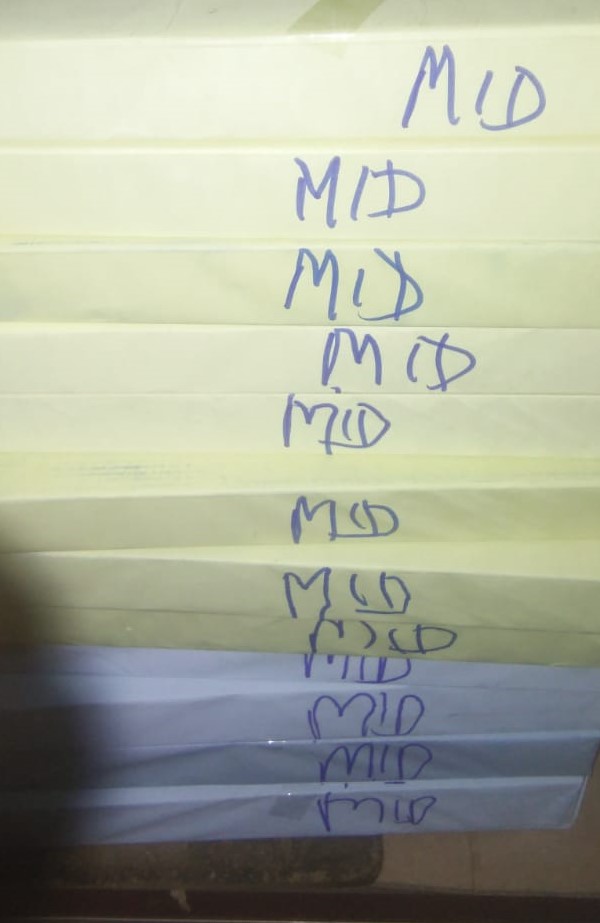 MID
MID
MID
MID
MID
MID
MID
MID
MID
MID
MID
MID